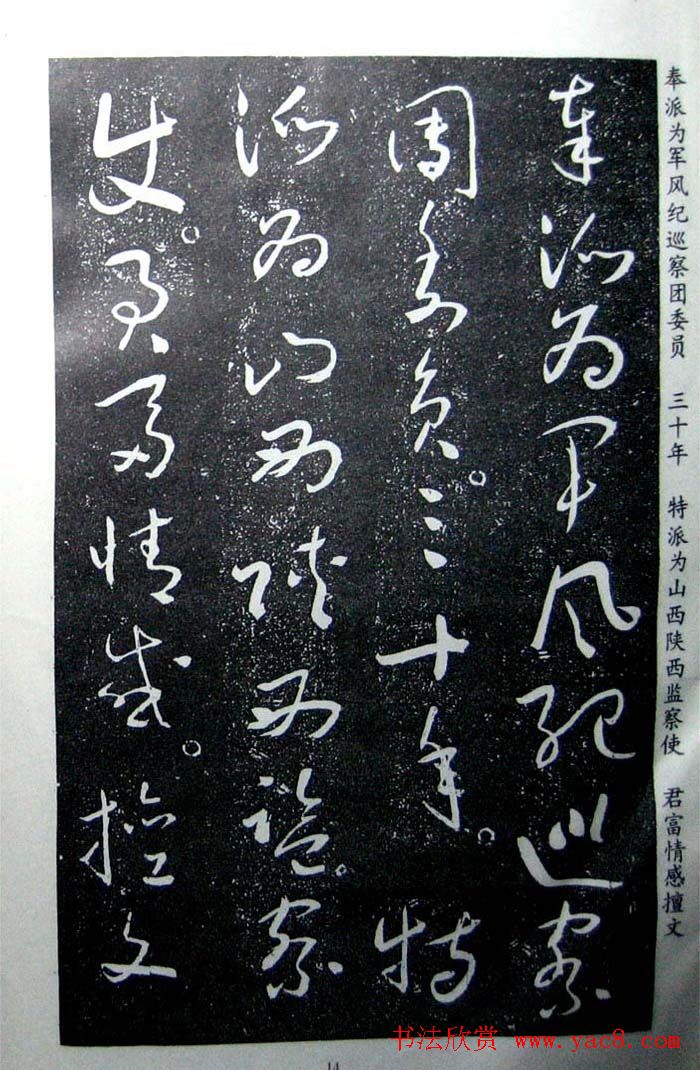 奉派为军风纪巡察
团委员。三十年。特
派为山西陕西监察
使。君富情感。擅文
奉派为军风纪巡察团委员 三十年 特派为山西陕西监察使 君富情感擅文
14
书法欣赏 www.yac8.com